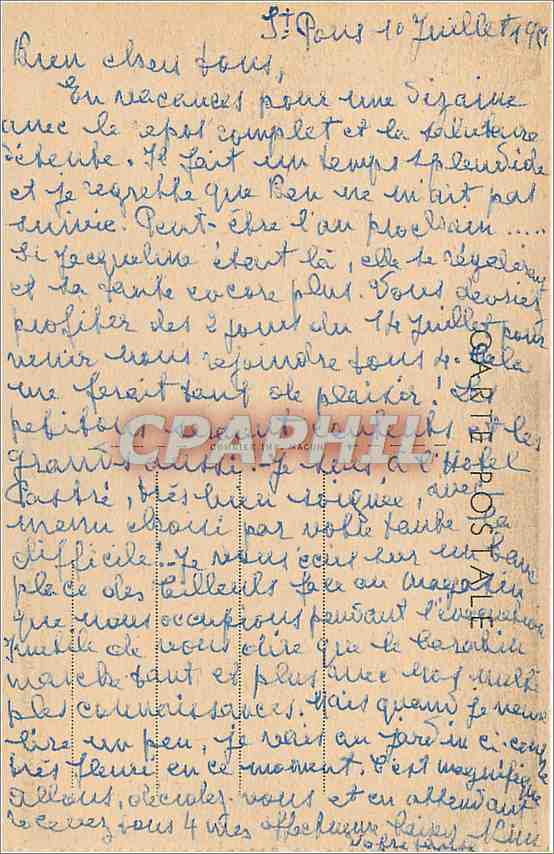 St Pons 10 Juillet 19
Bien chers tous,
En vacances pour une dizaine
avec le repos complet et la salutaire
détente. Il fait un temps splendide
et je regrette que Ben ne m'ait pas
suivie. Peut-être l'an prochain .....
Si Jacqueline était là, elle se régalerait
et sa tante encore plus. Vous devriez
profiter des 2 jours du 14 Juillet pour
venir nous rejoindre tous 4. Cela
me ferait tant de plaisir! Les
petitous seraient contents et les
grands aussi - Je suis à l'Hôtel
Pastré, très bien soignée, avec
menu choisi par votre tante la
difficile! - Je vous écris sur un banc
place des Tilleuls face au magasin
que nous occupions pendant l'évacuation
Inutile de vous dire que le
marche tant et plus avec mes multi
ples connaissances. Mais quand je veux
lire un peu, je vais au jardin ci-contre
très fleuri en ce moment. C'est magnifique
Allons, décidez-vous et en attendant
recevez tous 4 mes affectueux baisers
Votre tante
CARTE POSTALE
CPAPHIL